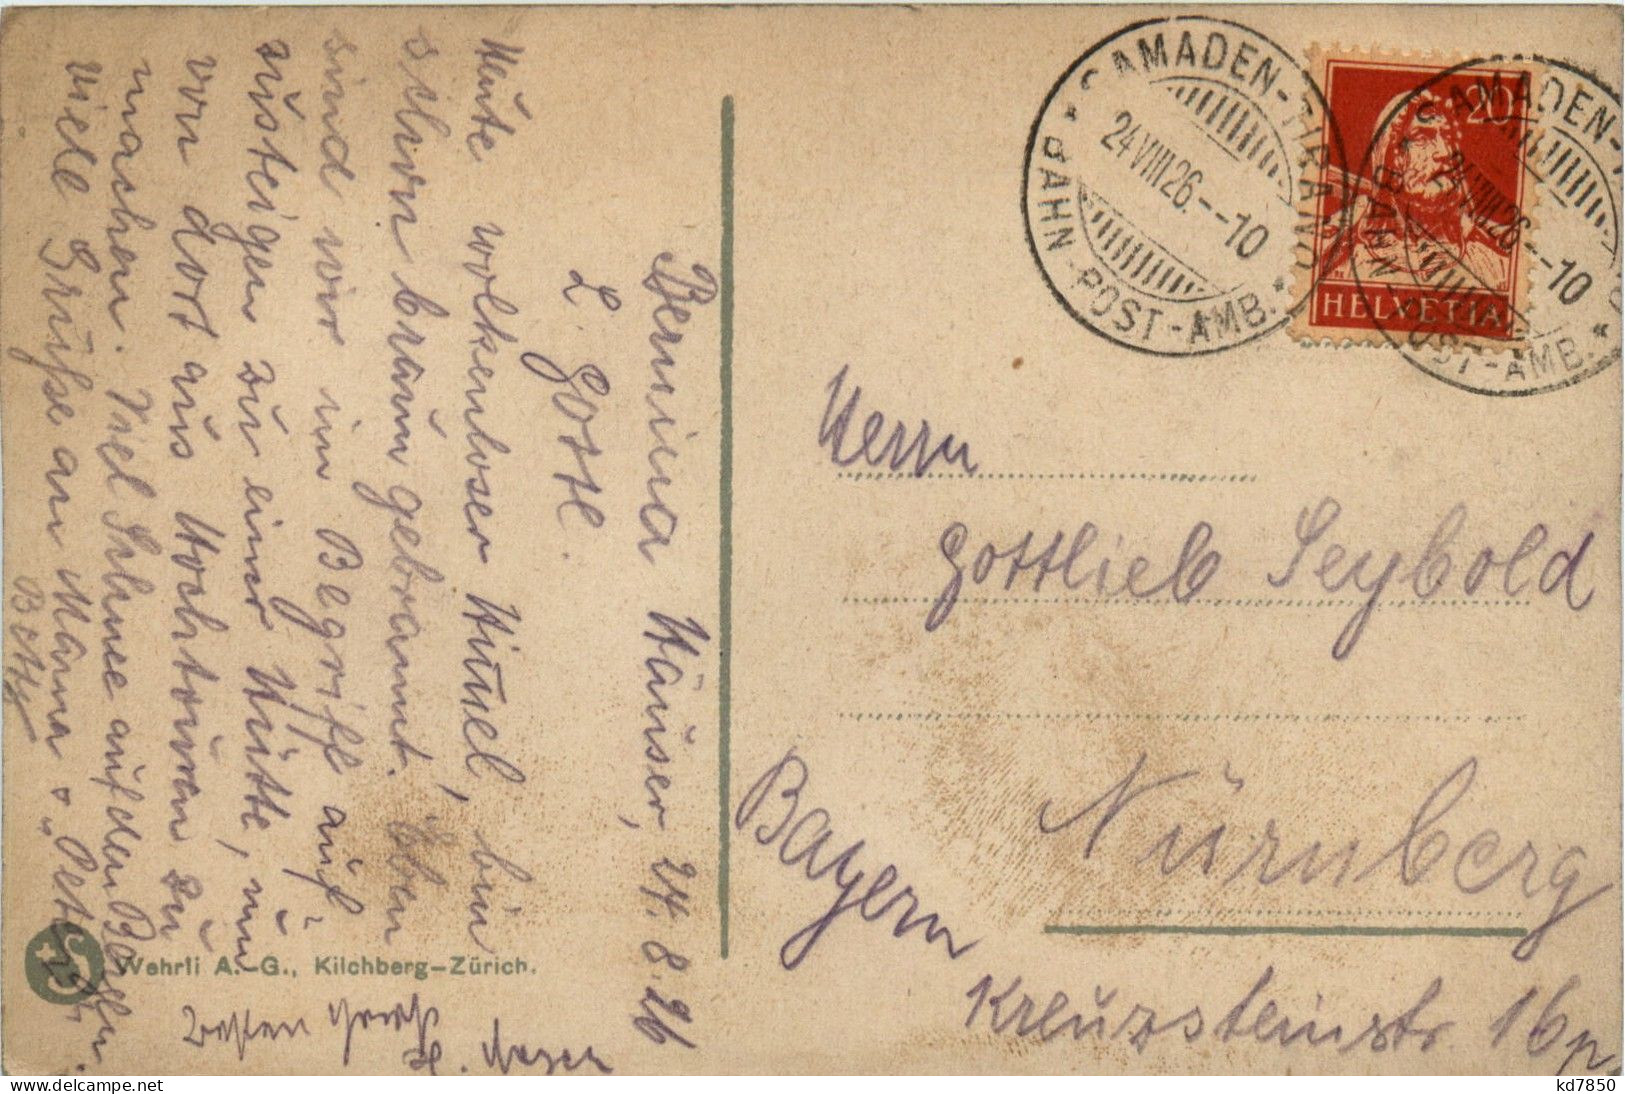 Bernina Häuser, 24.8.26
L. Gottl.
Heute wolkenloser Himel, bin
schon braun gebrannt. Eben
sind wir im Begriff auf
zusteigen zu einer Hütte, um
von dort aus Hochtouren zu
machen. Viel Schnee auf den Bergen.
Viele Grüße an Mama u.
Betty
Besten Gruß
SAMADEN-TIRANO
24 VIII 26.--10
* BAHN-POST-AMB. *
20
HELVETIA
SAMADEN-
24 VIII 26.--10
BAHN-POST-AMB. *
Herrn
Gottlieb Seybold
Nürnberg
Bayern
Kreuzsteinstr. 16
Wehrli A.-G., Kilchberg-Zürich.
kd7850